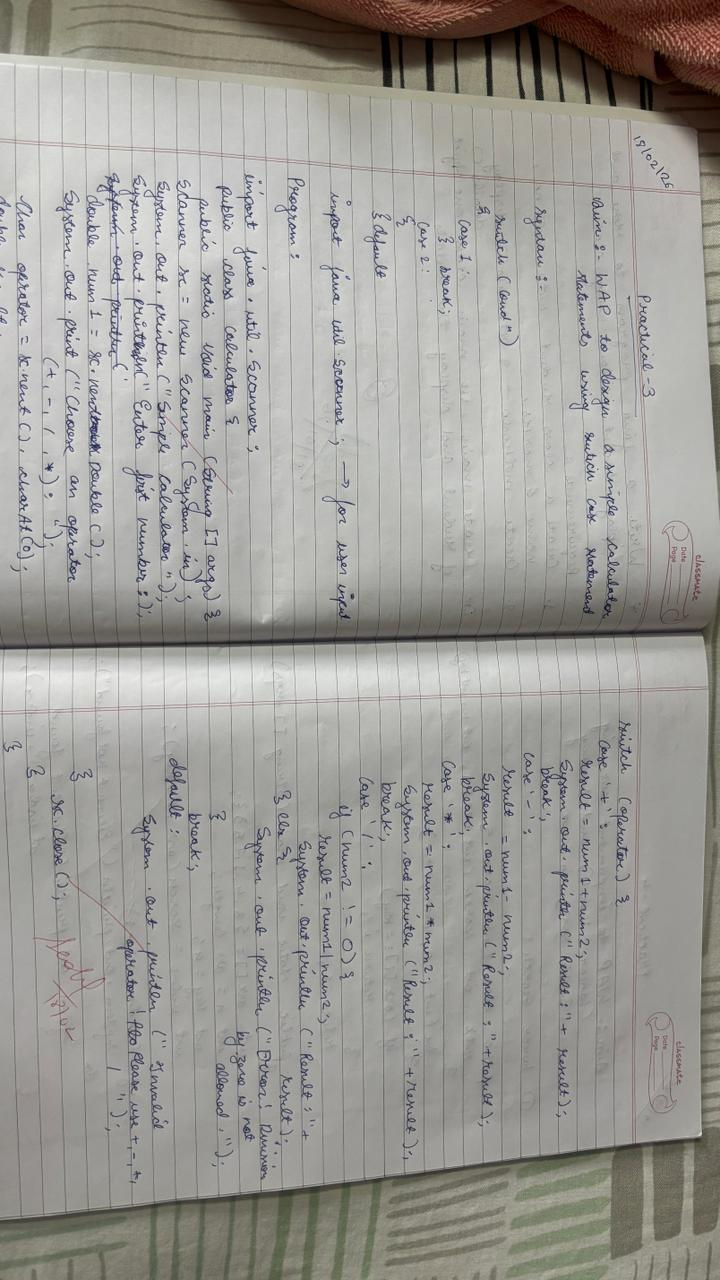 18/02/26
classmate
Date
Page
Practical - 3
Aim :- WAP to design a simple calculator
statements using switch case statement
Syntax :-
switch (condn)
{
case 1 :
} break;
case 2 :
{
} default
import java util scanner ; → for user input
Program :
import java . util . Scanner ;
public class calculator {
public static void main (String [] args) {
Scanner sc = new Scanner (System . in) ;
System . out . println (" Simple calculator ") ;
System . out . println (" Enter first number : );
system out println (
double num1 = sc. next Double ( ) ;
System . out . print (" Choose an operator
(+, -, /, *) : ");
char operator = sc next ( ) . charAt (0) ;
classmate
Date
Page
switch (operator) {
case '+' :
result = num1 + num2 ;
System . out . println (" Result : " + result) ;
break;
case '-' :
result = num1 - num2 ;
System . out . println (" Result : " + result) ;
break;
case '*' :
result = num1 * num2;
System . out . println (" Result : " + result) ;
break;
case '/' :
if (num2 != 0) {
result = num1/num2 ;
System . out . println (" Result : " +
result) ;
} else {
System . out . println (" Error ! Division
by zero is not
allowed . ") ;
}
break ;
default :
System . out . println (" Invalid
operator ! Please use +, -, *,
/ ") ;
}
sc . close ( ) ;
}
}